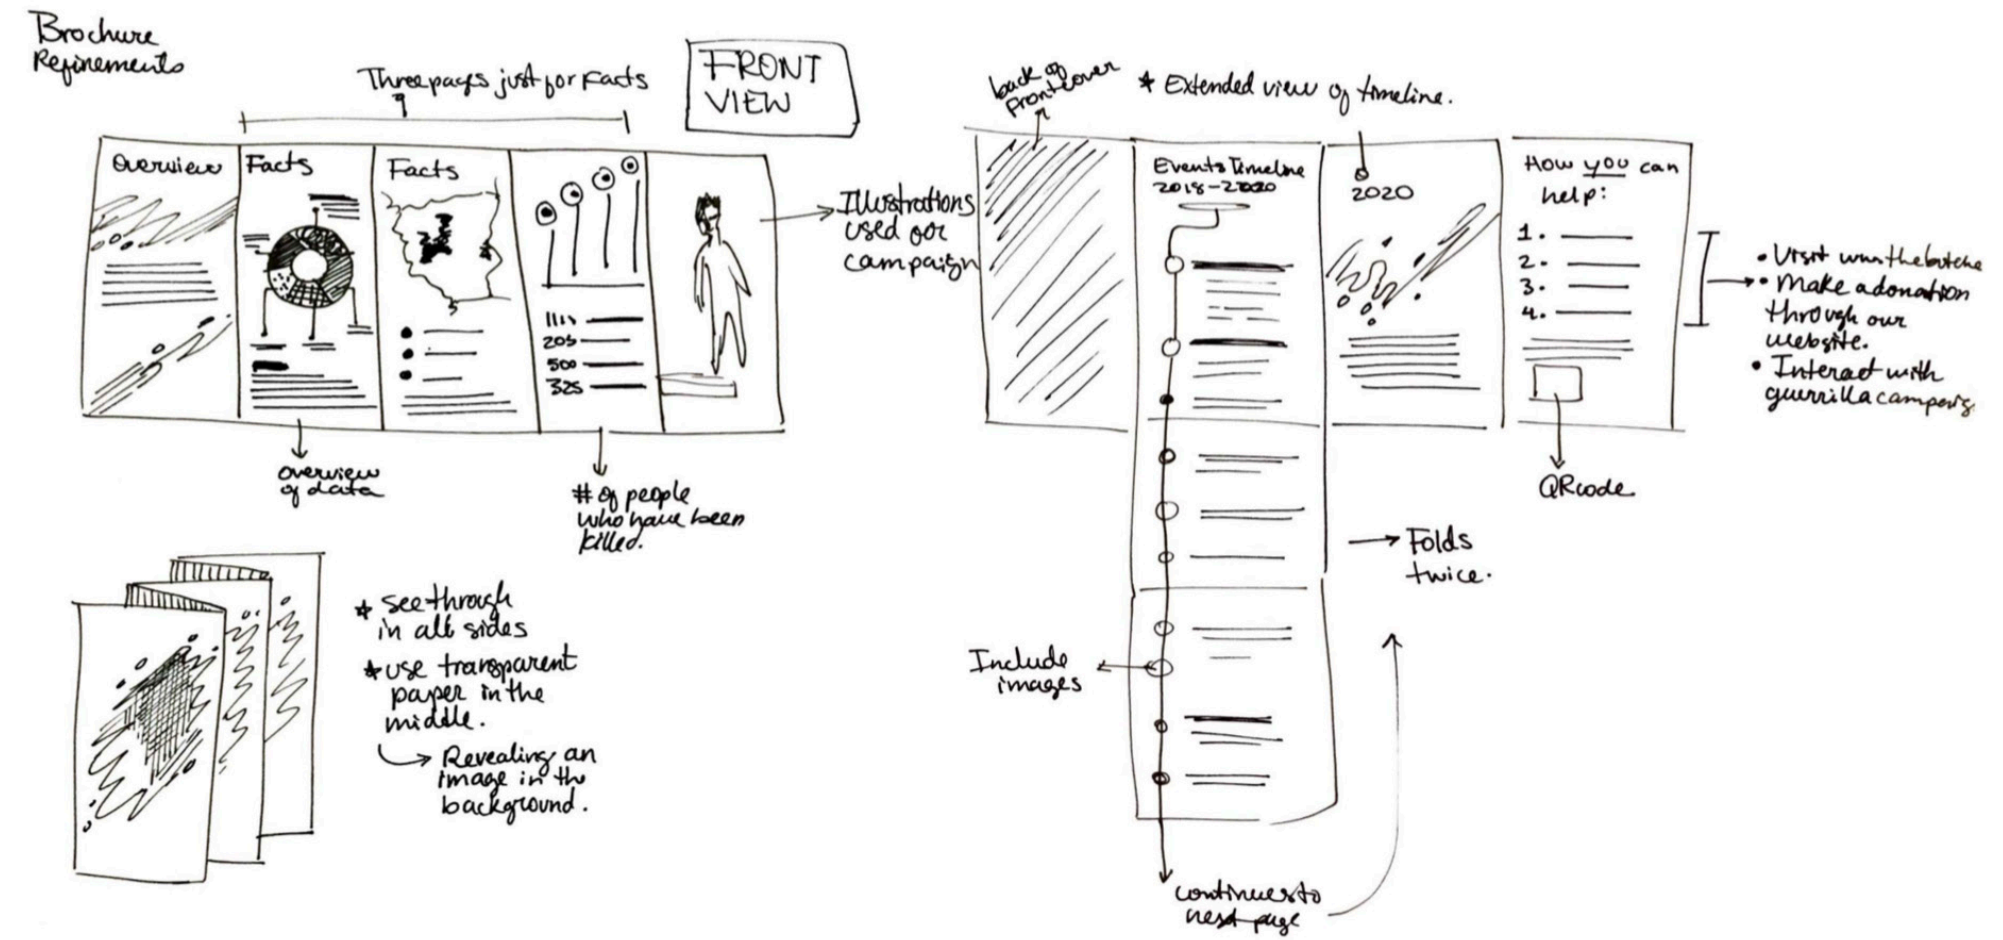 Brochure
Refinements
Three pages just for Facts
FRONT
VIEW
Overview
Facts
Facts
205
500
325
Illustrations
used for
campaign
overview
of data
# of people
who have been
killed.
* see through
in all sides
* use transparent
paper in the
middle.
Revealing an
image in the
background.
back of
front cover
* Extended view of timeline.
Events Timeline
2018-2020
2020
How you can
help:
1.
2.
3.
4.
• Visit
• Make a donation
through our
website.
• Interact with
guerrilla
QR code
Folds
twice.
Include
images
continues to
next page